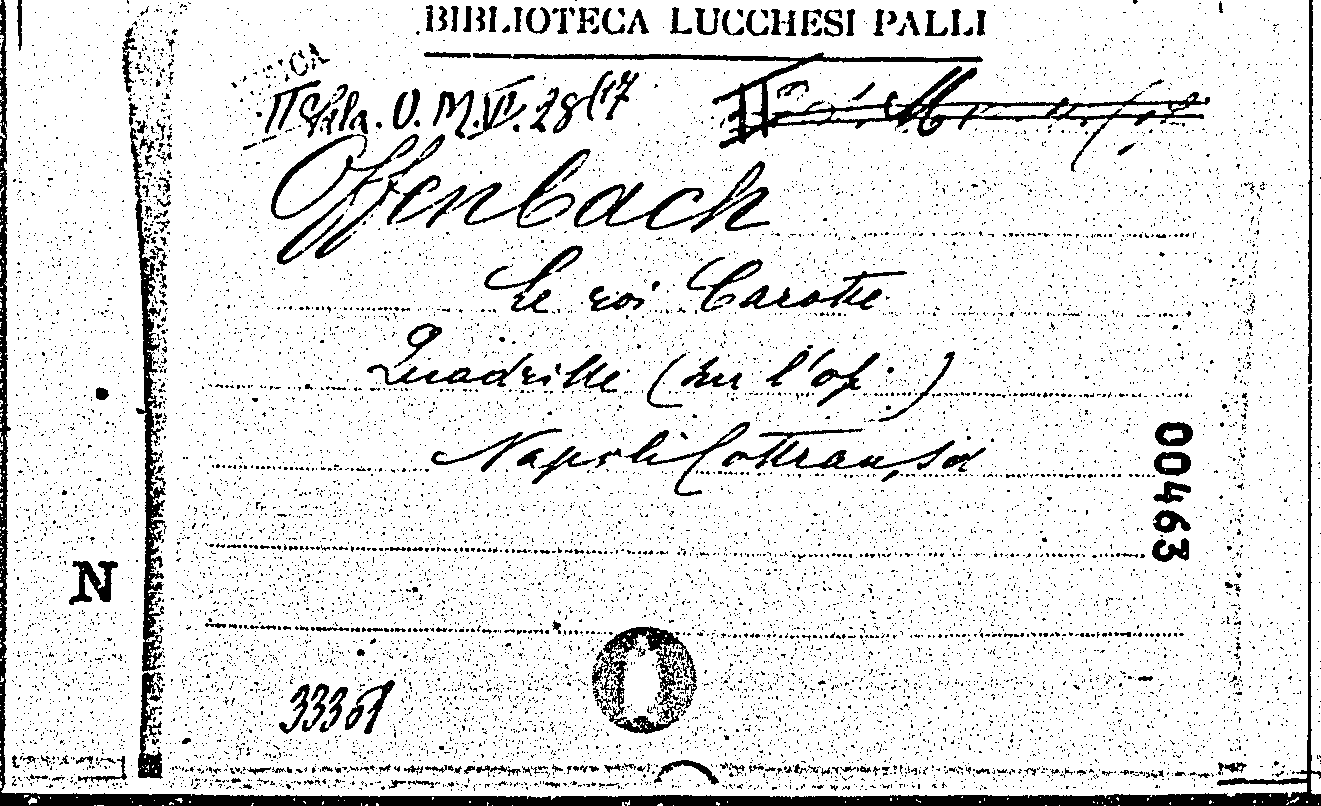 BIBLIOTECA LUCCHESI PALLI
MUSICA
II Sala. O. M. VI. 28(17
Offenbach
Le roi Carotte
Quadrille (sur l'op. )
Napoli Cottrau, sd
00463
N